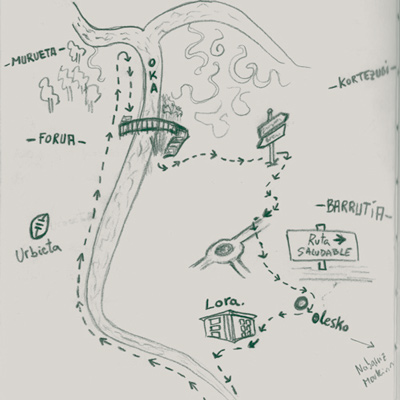 -MURUETA-
OKA
-KORTEZUBI-
-FORUA-
-BARRUTIA-
Urbieta
Ruta →
SALUDABLE
Lora.
Olesko